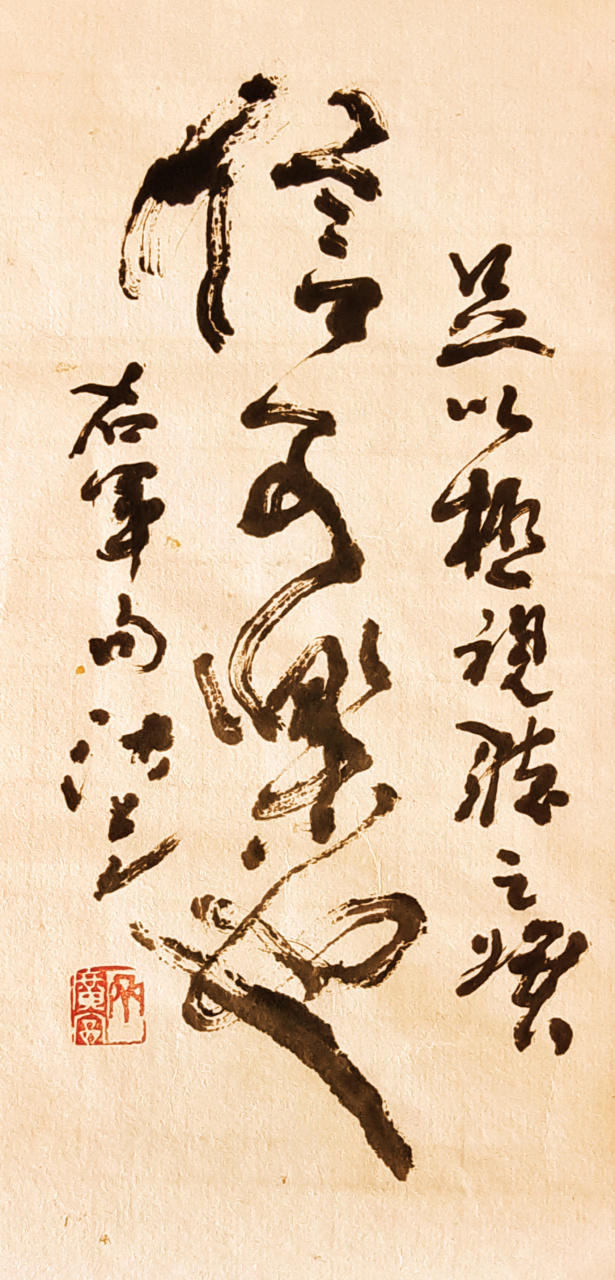 足以極視聽之娛
信可樂也
右軍句